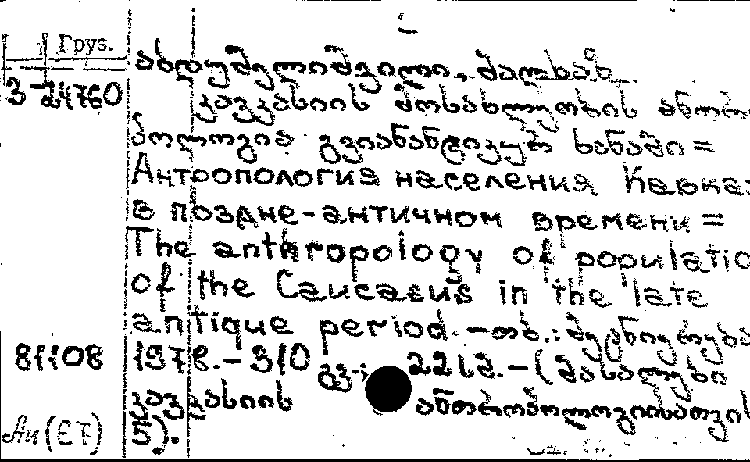 Груз.
აბდუშელიშვილი, მალხაზ.
3-24760 კავკასიის მოსახლეობის ანთრო
პოლოგია გვიანანტიკურ ხანაში =
Антропология населения Кавказ
в поздне-античном времени =
The anthropology of populatio
of the Caucasus in the late
antique period. - თბ.: მეცნიერება
81108 1978. - 310 გვ.; 22 სმ. - (მასალები
კავკასიის ანთროპოლოგიისათვის
Ан (ЕТ) 5).